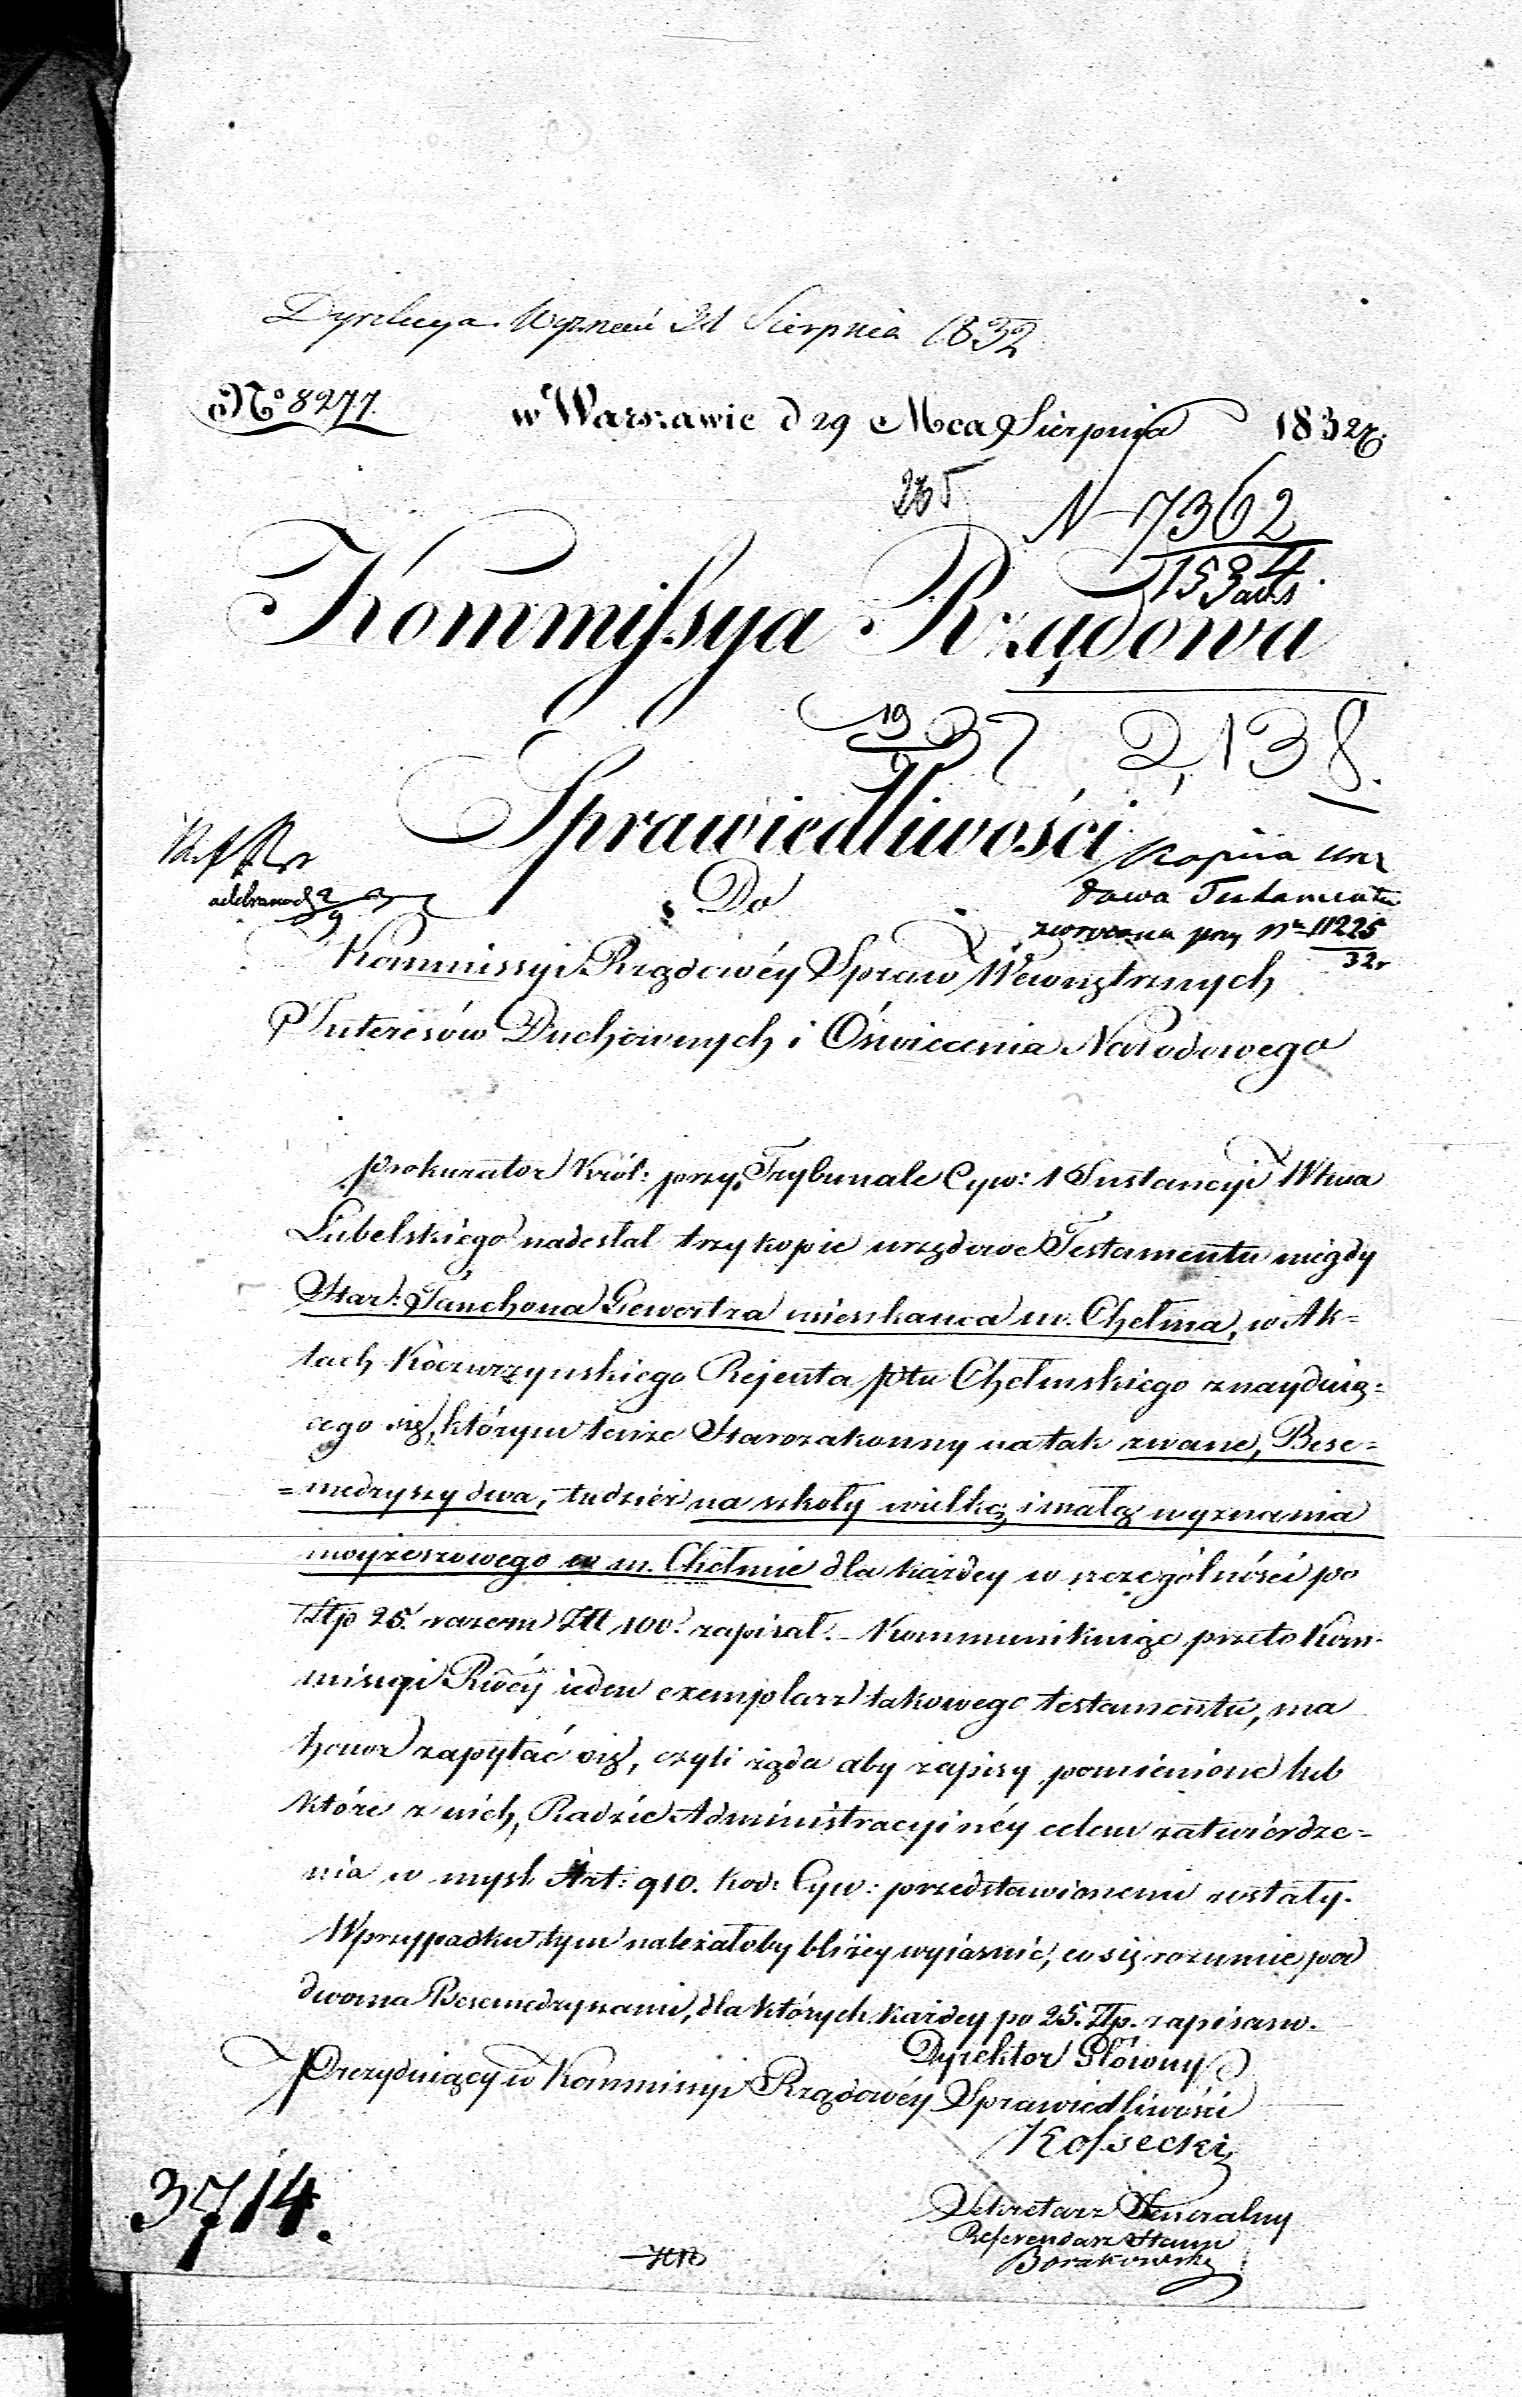 Dyrekcya Wyznań 31 Sierpnia 1832
No 8277. w Warszawie d 29 Mca Sierpnia 1832 r.
265 N 7362
1534
Kommissya Rządowa
19 37 2,138.
Sprawiedliwości
Kopiia urz
odebrano d 2/9 Do dowa Testamentu
zwrócona przy Nr 11225
32r
Kommissyi Rządowéy Spraw Wewnętrznych
Interesów Duchownych i Oświecenia Narodowego
Prokurator Król: przy Trybunale Cyw: 1 Instancyi Wtwa
Lubelskiego nadesłał trzy kopie urzędowe Testamentu niegdy
Star: Tanchona Gewertza mieszkanca m. Chełma, w Ak=
tach Koczurzynskiego Rejenta pttu Chełmskiego znayduią=
cego się, którym tenże Starozakonny na tak zwane, Bese=
=medryszy dwa, tudzież na szkoły wielką i małą wyznania
moyżeszowego w m. Chełmie dla każdey w szczególności po
Złp 25. razem Złł 100. zapisał. – Kommunikuiąc przeto Kom-
missyi Rwéy ieden exemplarz takowego testamentu, ma
honor zapytać się, czyli żąda aby zapisy pomienione lub
które z nich, Radzie Administracyinéy celem zatwierdze=
nia w mysl Art: 910. Kod: Cyw: przedstawionemi zostały.
W przypadku tym należałoby bliżey wyjasnić, co się rozumie pod
dwoma Besemedryszami, dla których każdey po 25. Złp. zapisano.
Dyrektor Główny
Prezyduiący w Kommissyi Rządowéy Sprawiedliwości
Kossecki
3714.
Sekretarz Generalny
Referendarz Stanu